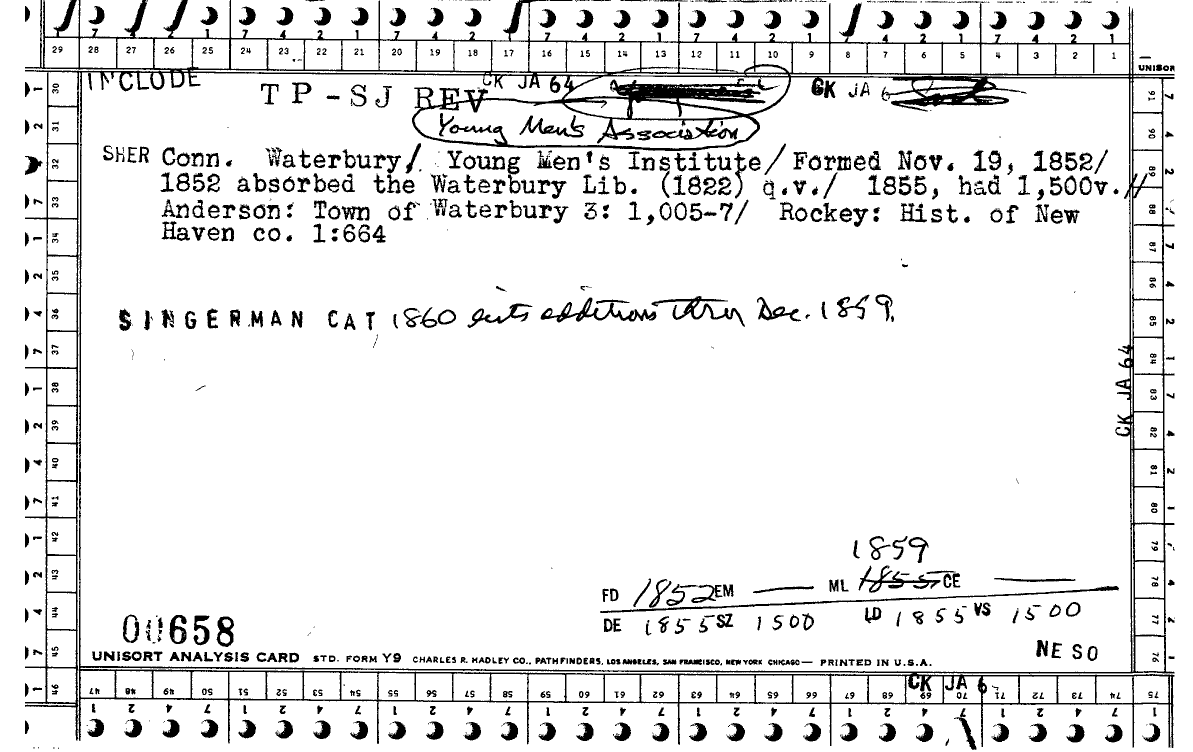 7 4 2 1 7 4 2 1 7 4 2 1 7 4 2 1 7 4 2 1
29 28 27 26 25 24 23 22 21 20 19 18 17 16 15 14 13 12 11 10 9 8 7 6 5 4 3 2 1
UNISOR
INCLUDE TP-SJ REV CK JA 64 CK JA 6
Young Men's Association
SHER Conn. Waterbury/ Young Men's Institute/ Formed Nov. 19, 1852/
1852 absorbed the Waterbury Lib. (1822) q.v./ 1855, had 1,500v.//
Anderson: Town of Waterbury 3: 1,005-7/ Rockey: Hist. of New
Haven co. 1:664
SINGERMAN CAT 1860 additions thru Dec. 1859.
CK JA 64
1859
FD 1852 EM — ML 1855 CE —
DE 1855 SZ 1500 LD 1855 VS 1500
00658
NE SO
UNISORT ANALYSIS CARD STD. FORM Y9 CHARLES R. HADLEY CO., PATHFINDERS, LOS ANGELES, SAN FRANCISCO, NEW YORK CHICAGO — PRINTED IN U.S.A.
CK JA 6
30 31 32 33 34 35 36 37 38 39 40 41 42 43 44 45 46
91 90 89 88 87 86 85 84 83 82 81 80 79 78 77 76 75
47 48 49 50 51 52 53 54 55 56 57 58 59 60 61 62 63 64 65 66 67 68 69 70 71 72 73 74 75